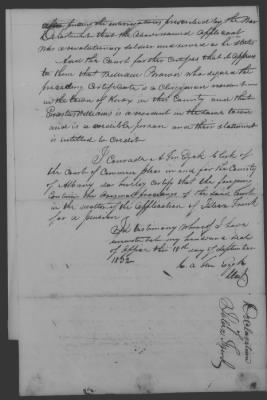 after putting the interrogatories prescribed by the War
Department that the above named applicant
was a revolutionary soldier and served as he states
And the Court further certifies that it appears
to them that William Brown who signed the
preceding certificate is a Clergyman resident
in the town of Knox in this County and that
Williams is a resident in the same town
and is a credible person and that their statement
is entitled to credit
I Conradt A Ten Eyck Clerk of
the Court of Common pleas in and for the County
of Albany do hereby certify that the foregoing
Contains the original proceedings of the said Court
in the matter of the application of
for a pension
In testimony whereof I have
hereunto set my hand and seal
of office this 18th day of September
1832
C. A. Ten Eyck
Clerk
Declaration
of